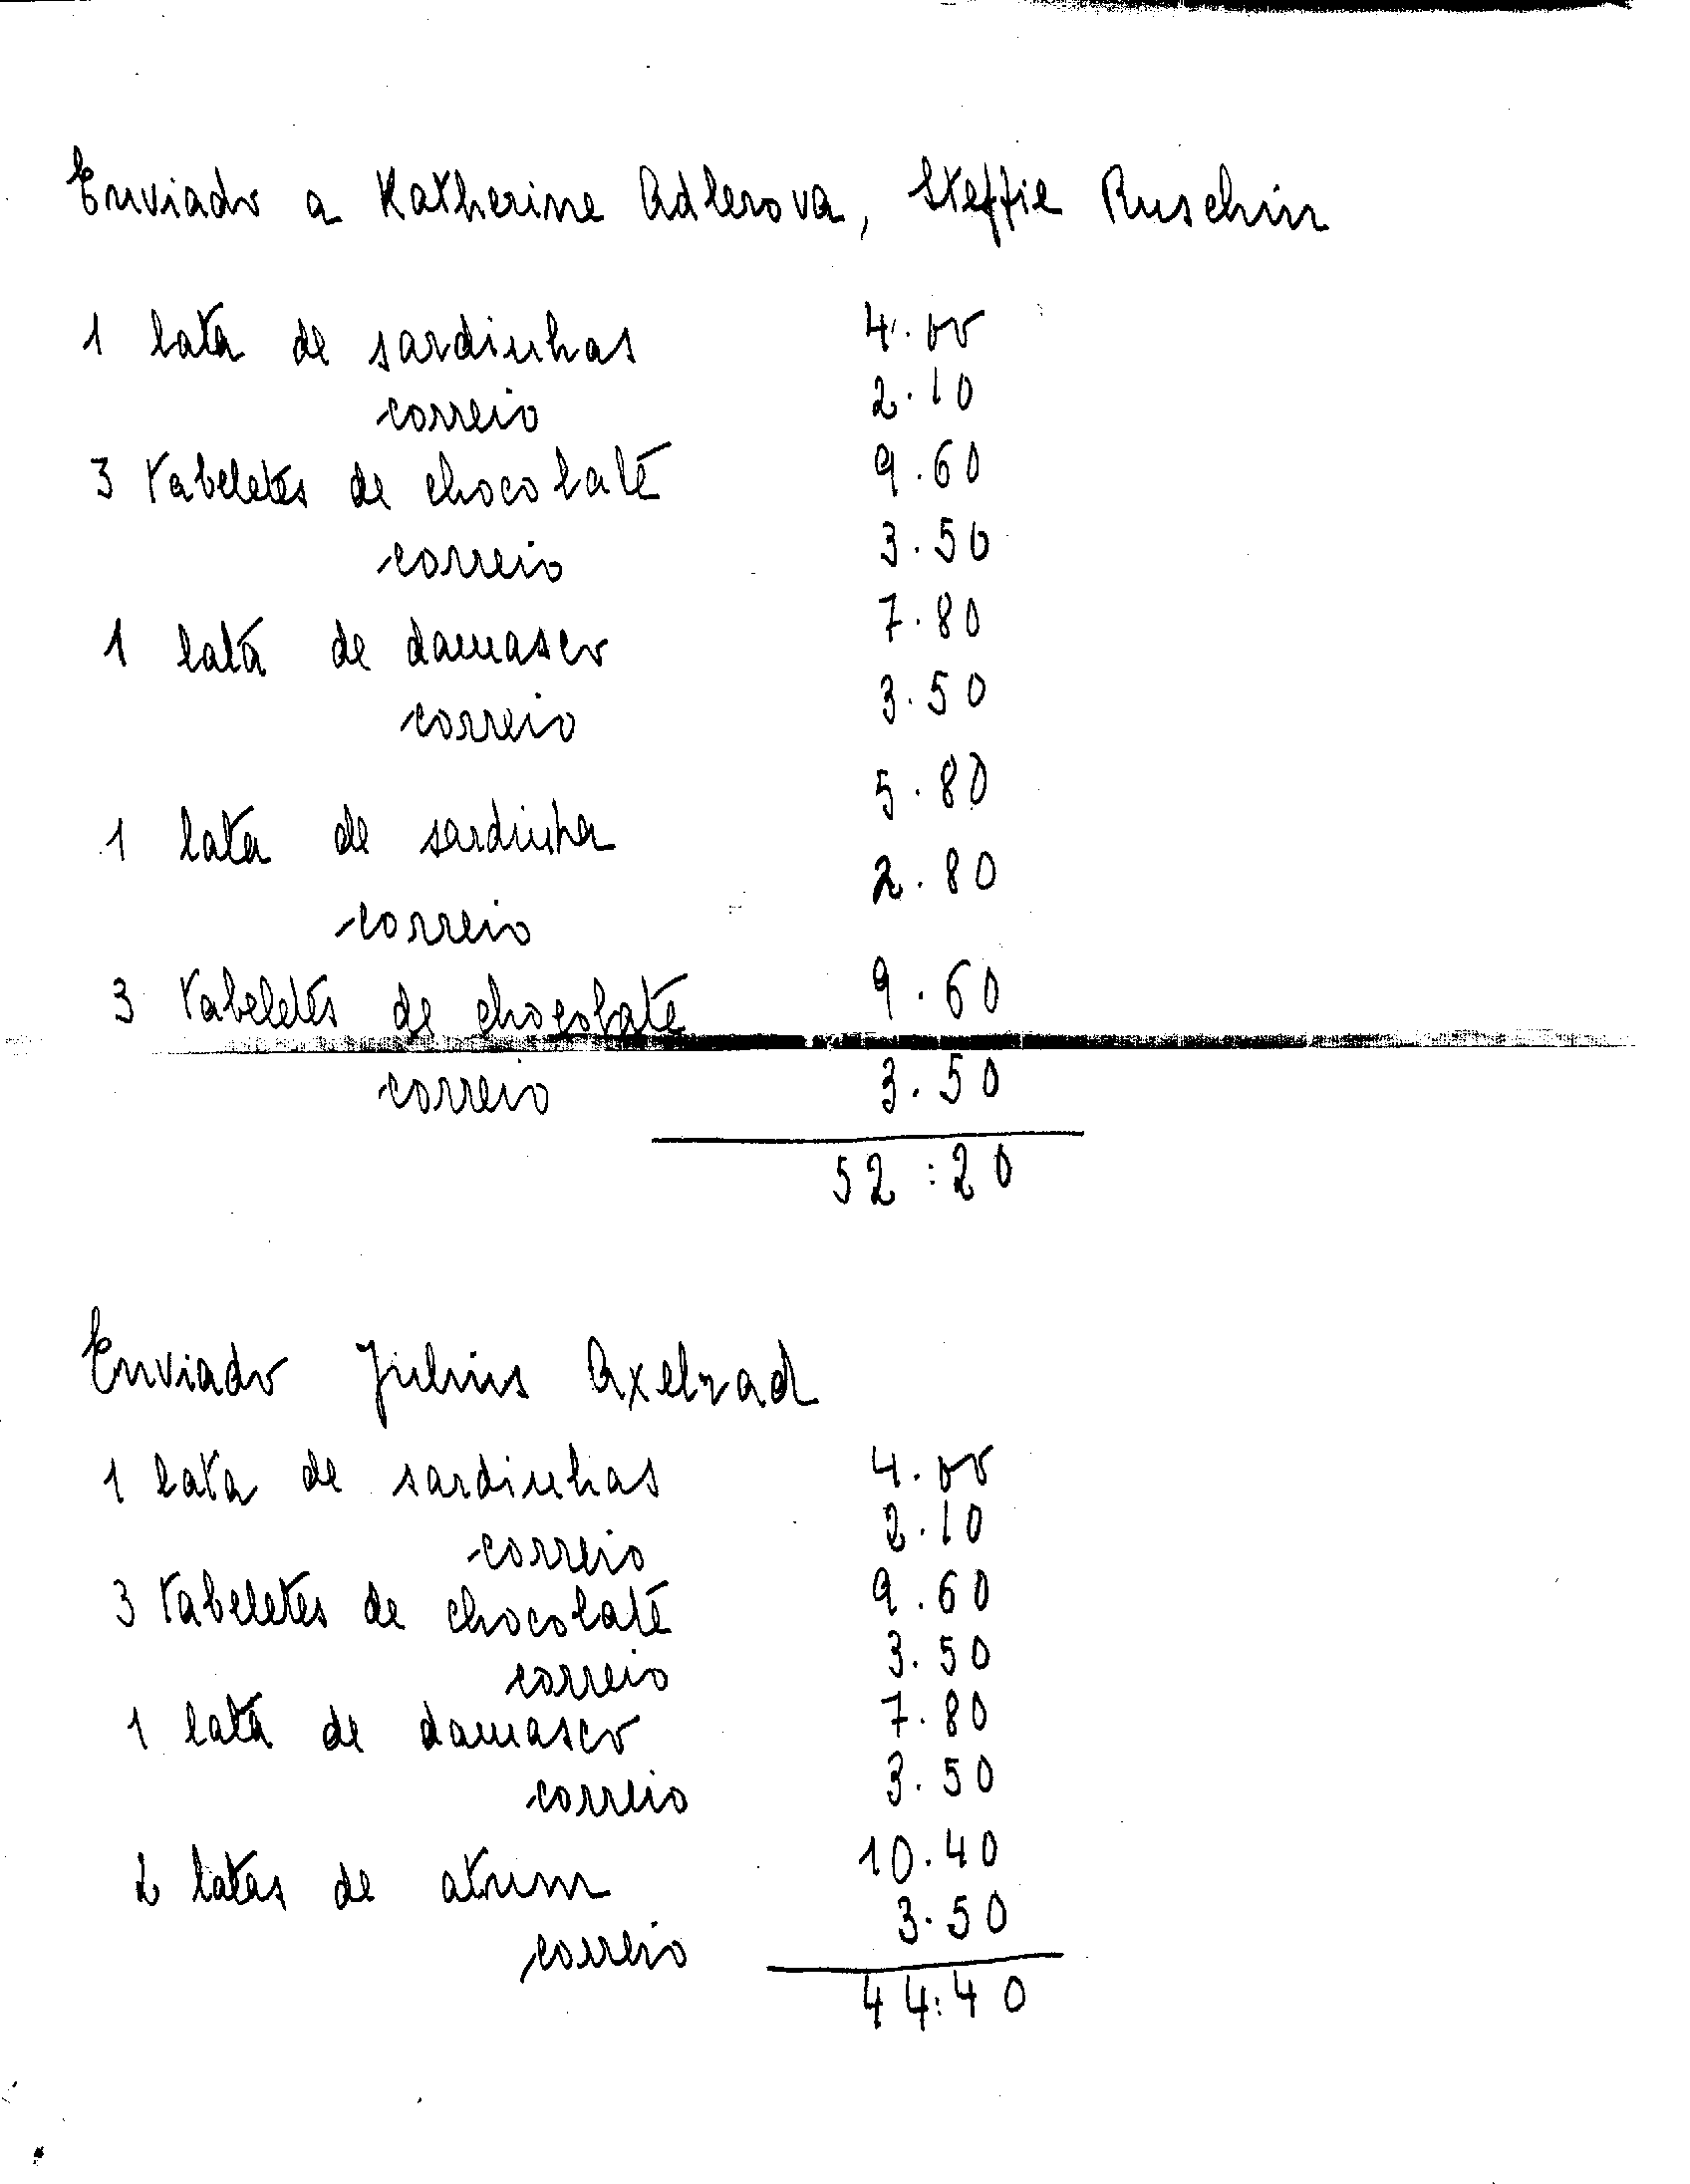 Enviado a Katherine Adlerova, Steffie Ruschin
1 lata de sardinhas 4.00
correio 2.10
3 tabeletes de chocolate 9.60
correio 3.50
1 lata de damasco 7.80
correio 3.50
1 lata de sardinha 5.80
correio 2.80
3 tabeletes de chocolate 9.60
correio 3.50
52:20
Enviado Julius Axelrad
1 lata de sardinhas 4.00
correio 2.10
3 tabeletes de chocolate 9.60
correio 3.50
1 lata de damasco 7.80
correio 3.50
2 latas de atum 10.40
correio 3.50
44:40